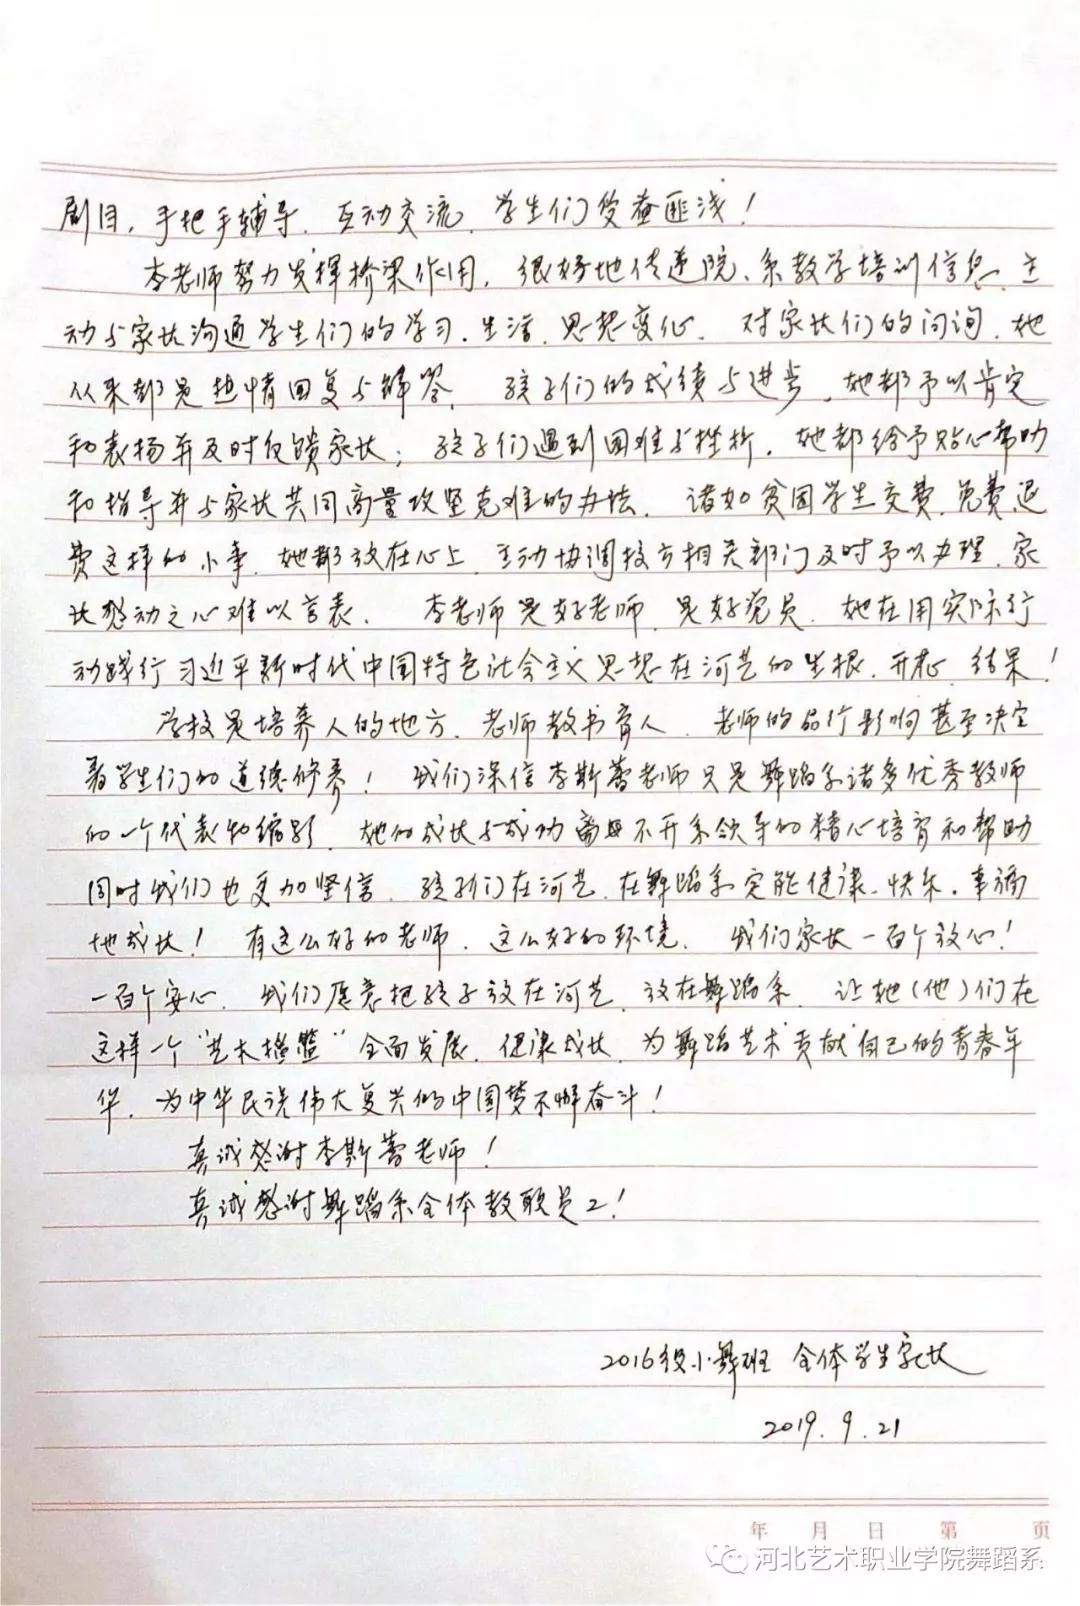 剧目，手把手辅导、互动交流，学生们受益匪浅！
李老师努力发挥桥梁作用，很好地传递院、系教学培训信息，主
动与家长沟通学生们的学习、生活、思想变化，对家长们的问询，她
从来都是热情回复与解答，孩子们的成绩与进步，她都予以肯定
和表扬并及时反馈家长；孩子们遇到困难与挫折，她都给予贴心帮助
和指导并与家长共同商量攻坚克难的办法，诸如贫困学生交费、免费、退
费这样的小事，她都放在心上，主动协调校方相关部门及时予以办理，家
长感动之心难以言表。李老师是好老师，是好党员，她在用实际行
动践行习近平新时代中国特色社会主义思想在河艺的生根、开花、结果！
学校是培养人的地方，老师教书育人，老师的品行影响甚至决定
着学生们的道德修养！我们深信李斯蕾老师只是舞蹈系诸多优秀教师
的一个代表和缩影，她的成长与成功离不开系领导的精心培育和帮助
同时我们也更加坚信，孩子们在河艺，在舞蹈系定能健康、快乐、幸福
地成长！有这么好的老师，这么好的环境，我们家长一百个放心！
一百个安心，我们愿意把孩子放在河艺，放在舞蹈系，让她（他）们在
这样一个“艺术摇篮”全面发展，健康成长，为舞蹈艺术贡献自己的青春年
华，为中华民族伟大复兴的中国梦不懈奋斗！
真诚感谢李斯蕾老师！
真诚感谢舞蹈系全体教职员工！
2016级小舞班 全体学生家长
2019.9.21
年 月 日 第 页
河北艺术职业学院舞蹈系